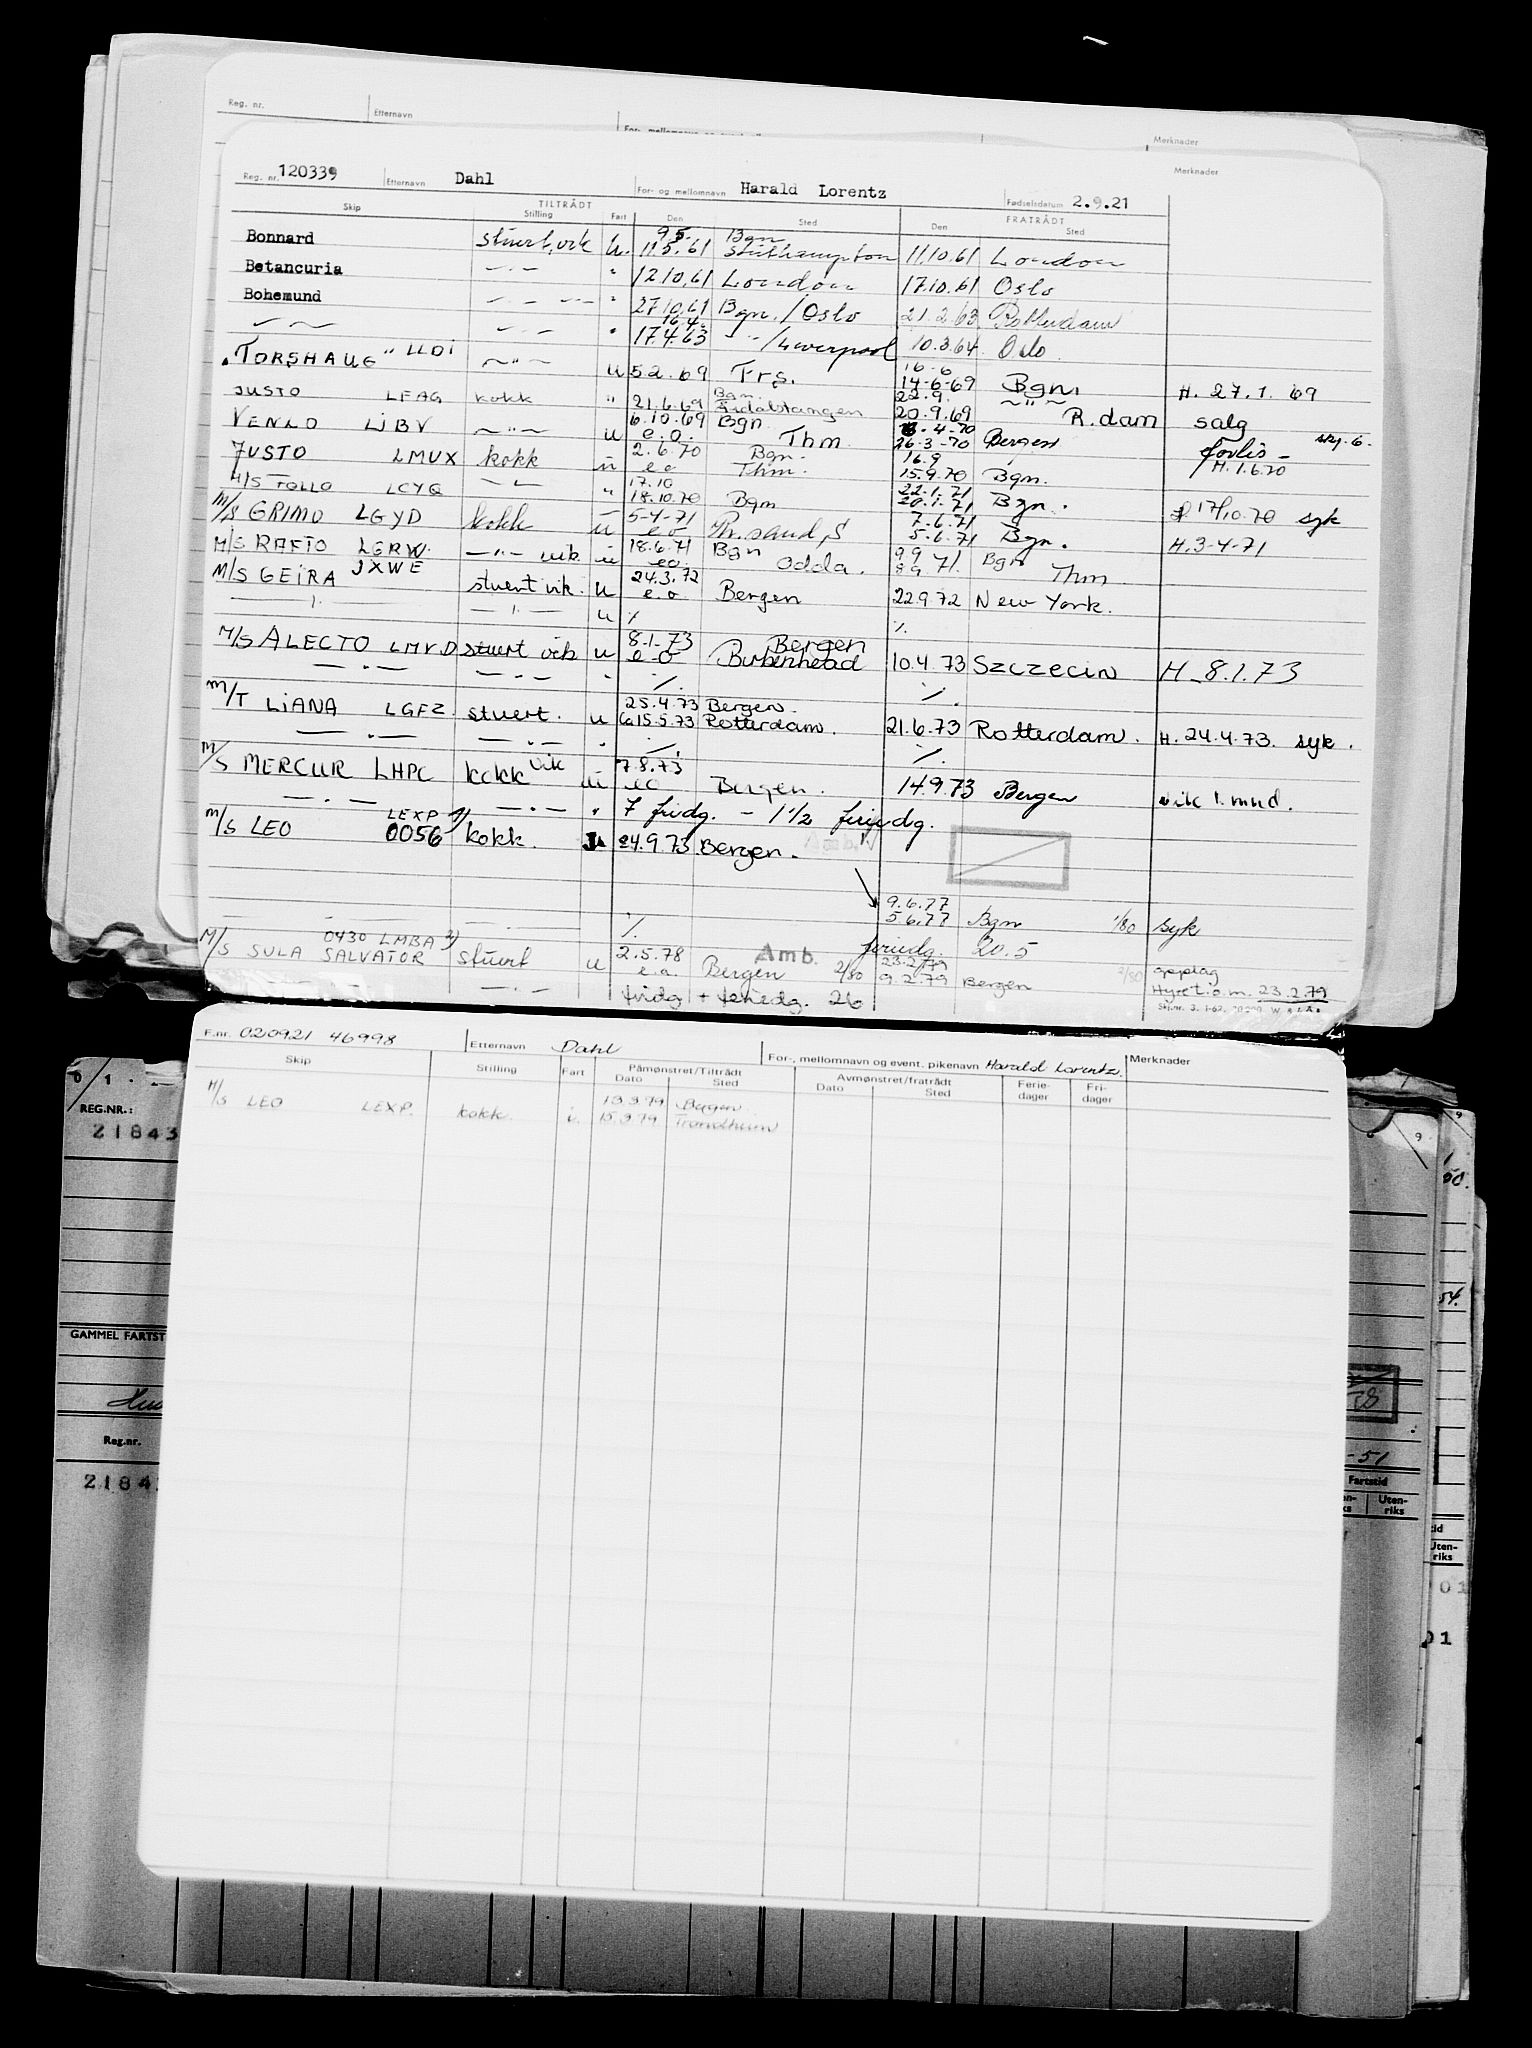 Reg. nr. Etternavn For- mellomnavn Merknader
Reg. nr. 120339 Etternavn Dahl For- og mellomnavn Harald Lorentz Fødselsdatum 2.9.21 Merknader
Skip TILTRÅDT Stilling Fart Den Sted FRATRÅDT Den Sted
9.5. Bgn
Bonnard stuert, vik u. 11.5.61 Southampton 11.10.61 London
Betancuria — · — " 12.10.61 London 17.10.61 Oslo
Bohemund — · — " 27.10.61 Bgn. / Oslo 21.2.63 Rotterdam
16.4.
— · — " 17.4.63 — " — / Liverpool 10.3.64 Oslo
16-6
"TORSHAUG" LLDI — " — u 5.2.69 Trs. 14-6-69 Bgn. H. 27.1.69
Bgn. 22.9. — " —
JUSTO LEAG kokk " 21.6.69 Årdalstangen 20.9.69 R.dam salg
6.10.69 Bgn 8-4-70
VENLO LJBV — " — u e.o. Thm 26-3-70 Bergen forlis -
2.6.70 Bgn. 16.9
JUSTO LMUX kokk u e.o Thm. 15.9.70 Bgn. H. 1.6.70
17.10 22.1.71
M/S TOLLO LCYQ — " — " 18.10.70 Bgn 20.1.71 Bgn. 17/10.70 syk
5-4-71 7.6.71
M/S GRIMO LGYD kokk u e o Kr.sand, S 5.6.71 Bgn. H. 3-4-71
18.6.71 Bgn 9.9
M/S RAFTO LGRW. — " — vik. u eo. Odda. 8.9 71. Bgn Thm
24.3.72
M/S GEIRA JXWE stuert vik. u e.o. Bergen 22.9.72 New York.
— " — — " — u % %
8.1.73 Bergen
M/S ALECTO LMVD stuert vik u e o Birkenhead 10.4.73 SZCZECIN H. 8.1.73
— " — — " — " % %
25.4.73 Bergen.
M/T LIANA LGFZ. stuert. u 15.5.73 Rotterdam. 21.6.73 Rotterdam. H. 24.4.73. syk.
— " — — " — " % %
7.8.73
M/S MERCUR LHPC kokk vik u eo Bergen. 14.9.73 Bergen vik 1. mnd.
— " — — " — " 7 fridg. - 1 1/2 feriedg.
LEXP 1)
M/S LEO 0056 kokk. u 24.9.73 Bergen.
9.6.77
5.6.77 Bgn 1/80 syk
— · — % feriedg. 20.5
0430 LMBA 2) 2.5.78 Amb. 23.2.79 opplag
M/S SULA SALVATOR stuert u e.o. Bergen 2/80 9.2.79 Bergen 2/80 Hyre t.o.m. 23.2.79
— · — fridg + feriedg. 26
F.nr. 020921 46998 Etternavn Dahl For-, mellomnavn og event. pikenavn Harald Lorentz. Merknader
Skip Stilling Fart Påmønstret/Tiltrådt Dato Sted Avmønstret/fratrådt Dato Sted Ferie- dager Fri- dager
13.3.79 Bergen
M/S LEO LEXP. kokk. i. 15.3.79 Trondheim
REG.NR.:
21843
GAMMEL FARTST
Reg.nr.
2184
-51
Fartstid
Uten-
riks
01